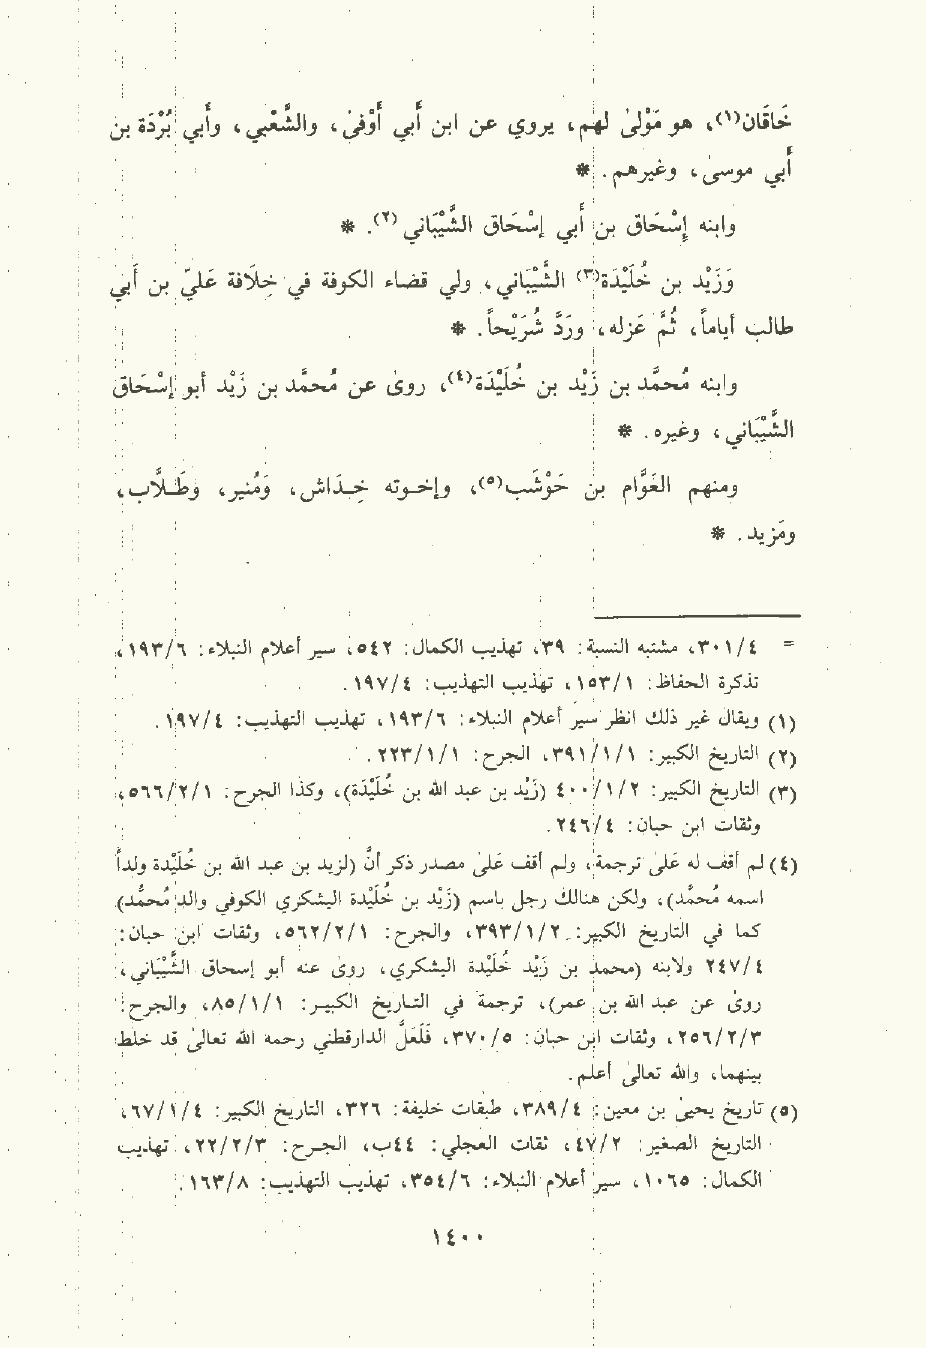 خَاقَان(١)، هو مَوْلىٰ لهم، يروي عن ابن أبي أَوْفىٰ، والشَّعْبي، وأَبي بُرْدَة بن
أَبي موسىٰ، وغيرهم. *
وابنه إِسْحَاق بن أَبي إسْحَاق الشَّيْبَاني(٢). *
وَزَيْد بن خُلَيْدَة(٣) الشَّيْبَاني، ولي قضاء الكوفة في خِلَافة عَليّ بن أَبي
طالب أياماً، ثُمَّ عَزله، ورَدَّ شُرَيْحاً. *
وابنه مُحمَّد بن زَيْد بن خُلَيْدَة(٤)، روىٰ عن مُحمَّد بن زَيْد أبو إسْحَاق
الشَّيْبَاني، وغيره. *
ومنهم العَوَّام بن حَوْشَب(٥)، وإخـوته خِـدَاش، وَمُنير، وطَـلَّاب،
ومَزيد. *
= ٣٠١/٤، مشتبه النسبة: ٣٩، تهذيب الكمال: ٥٤٢، سير أعلام النبلاء: ١٩٣/٦،
تذكرة الحفاظ: ١٥٣/١، تهذيب التهذيب: ١٩٧/٤.
(١) ويقال غير ذلك انظر سير أعلام النبلاء: ١٩٣/٦، تهذيب التهذيب: ١٩٧/٤.
(٢) التاريخ الكبير: ٣٩١/١/١، الجرح: ٢٢٣/١/١.
(٣) التاريخ الكبير: ٤٠٠/١/٢ (زَيْد بن عبد الله بن خُلَيْدَة)، وكذا الجرح: ٥٦٦/٢/١،
وثقات ابن حبان: ٢٤٦/٤.
(٤) لم أقف له علىٰ ترجمة، ولم أقف علىٰ مصدر ذكر أنَّ (لزيد بن عبد الله بن خُلَيْدة ولداً
اسمه مُحمَّد)، ولكن هنالك رجل باسم (زَيْد بن خُلَيْدة اليشكري الكوفي والد مُحمَّد)
كما في التاريخ الكبير: ٣٩٣/١/٢، والجرح: ٥٦٢/٢/١، وثقات ابن حبان:
٢٤٧/٤ ولابنه (محمد بن زَيْد خُلَيْدة اليشكري، روىٰ عنه أبو إسحاق الشَّيْبَاني،
روىٰ عن عبد الله بن عمر)، ترجمة في التـاريخ الكبيـر: ٨٥/١/١، والجرح:
٢٥٦/٢/٣، وثقات ابن حبان: ٣٧٠/٥، فَلَعَلَّ الدارقطني رحمه الله تعالىٰ قد خلط
بينهما، والله تعالىٰ أعلم.
(٥) تاريخ يحيىٰ بن معين: ٣٨٩/٤، طبقات خليفة: ٣٢٦، التاريخ الكبير: ٦٧/١/٤،
التاريخ الصغير: ٤٧/٢، ثقات العجلي: ٤٤ب، الجـرح: ٢٢/٢/٣، تهذيب
الكمال: ١٠٦٥، سير أعلام النبلاء: ٣٥٤/٦، تهذيب التهذيب: ١٦٣/٨.
١٤٠٠